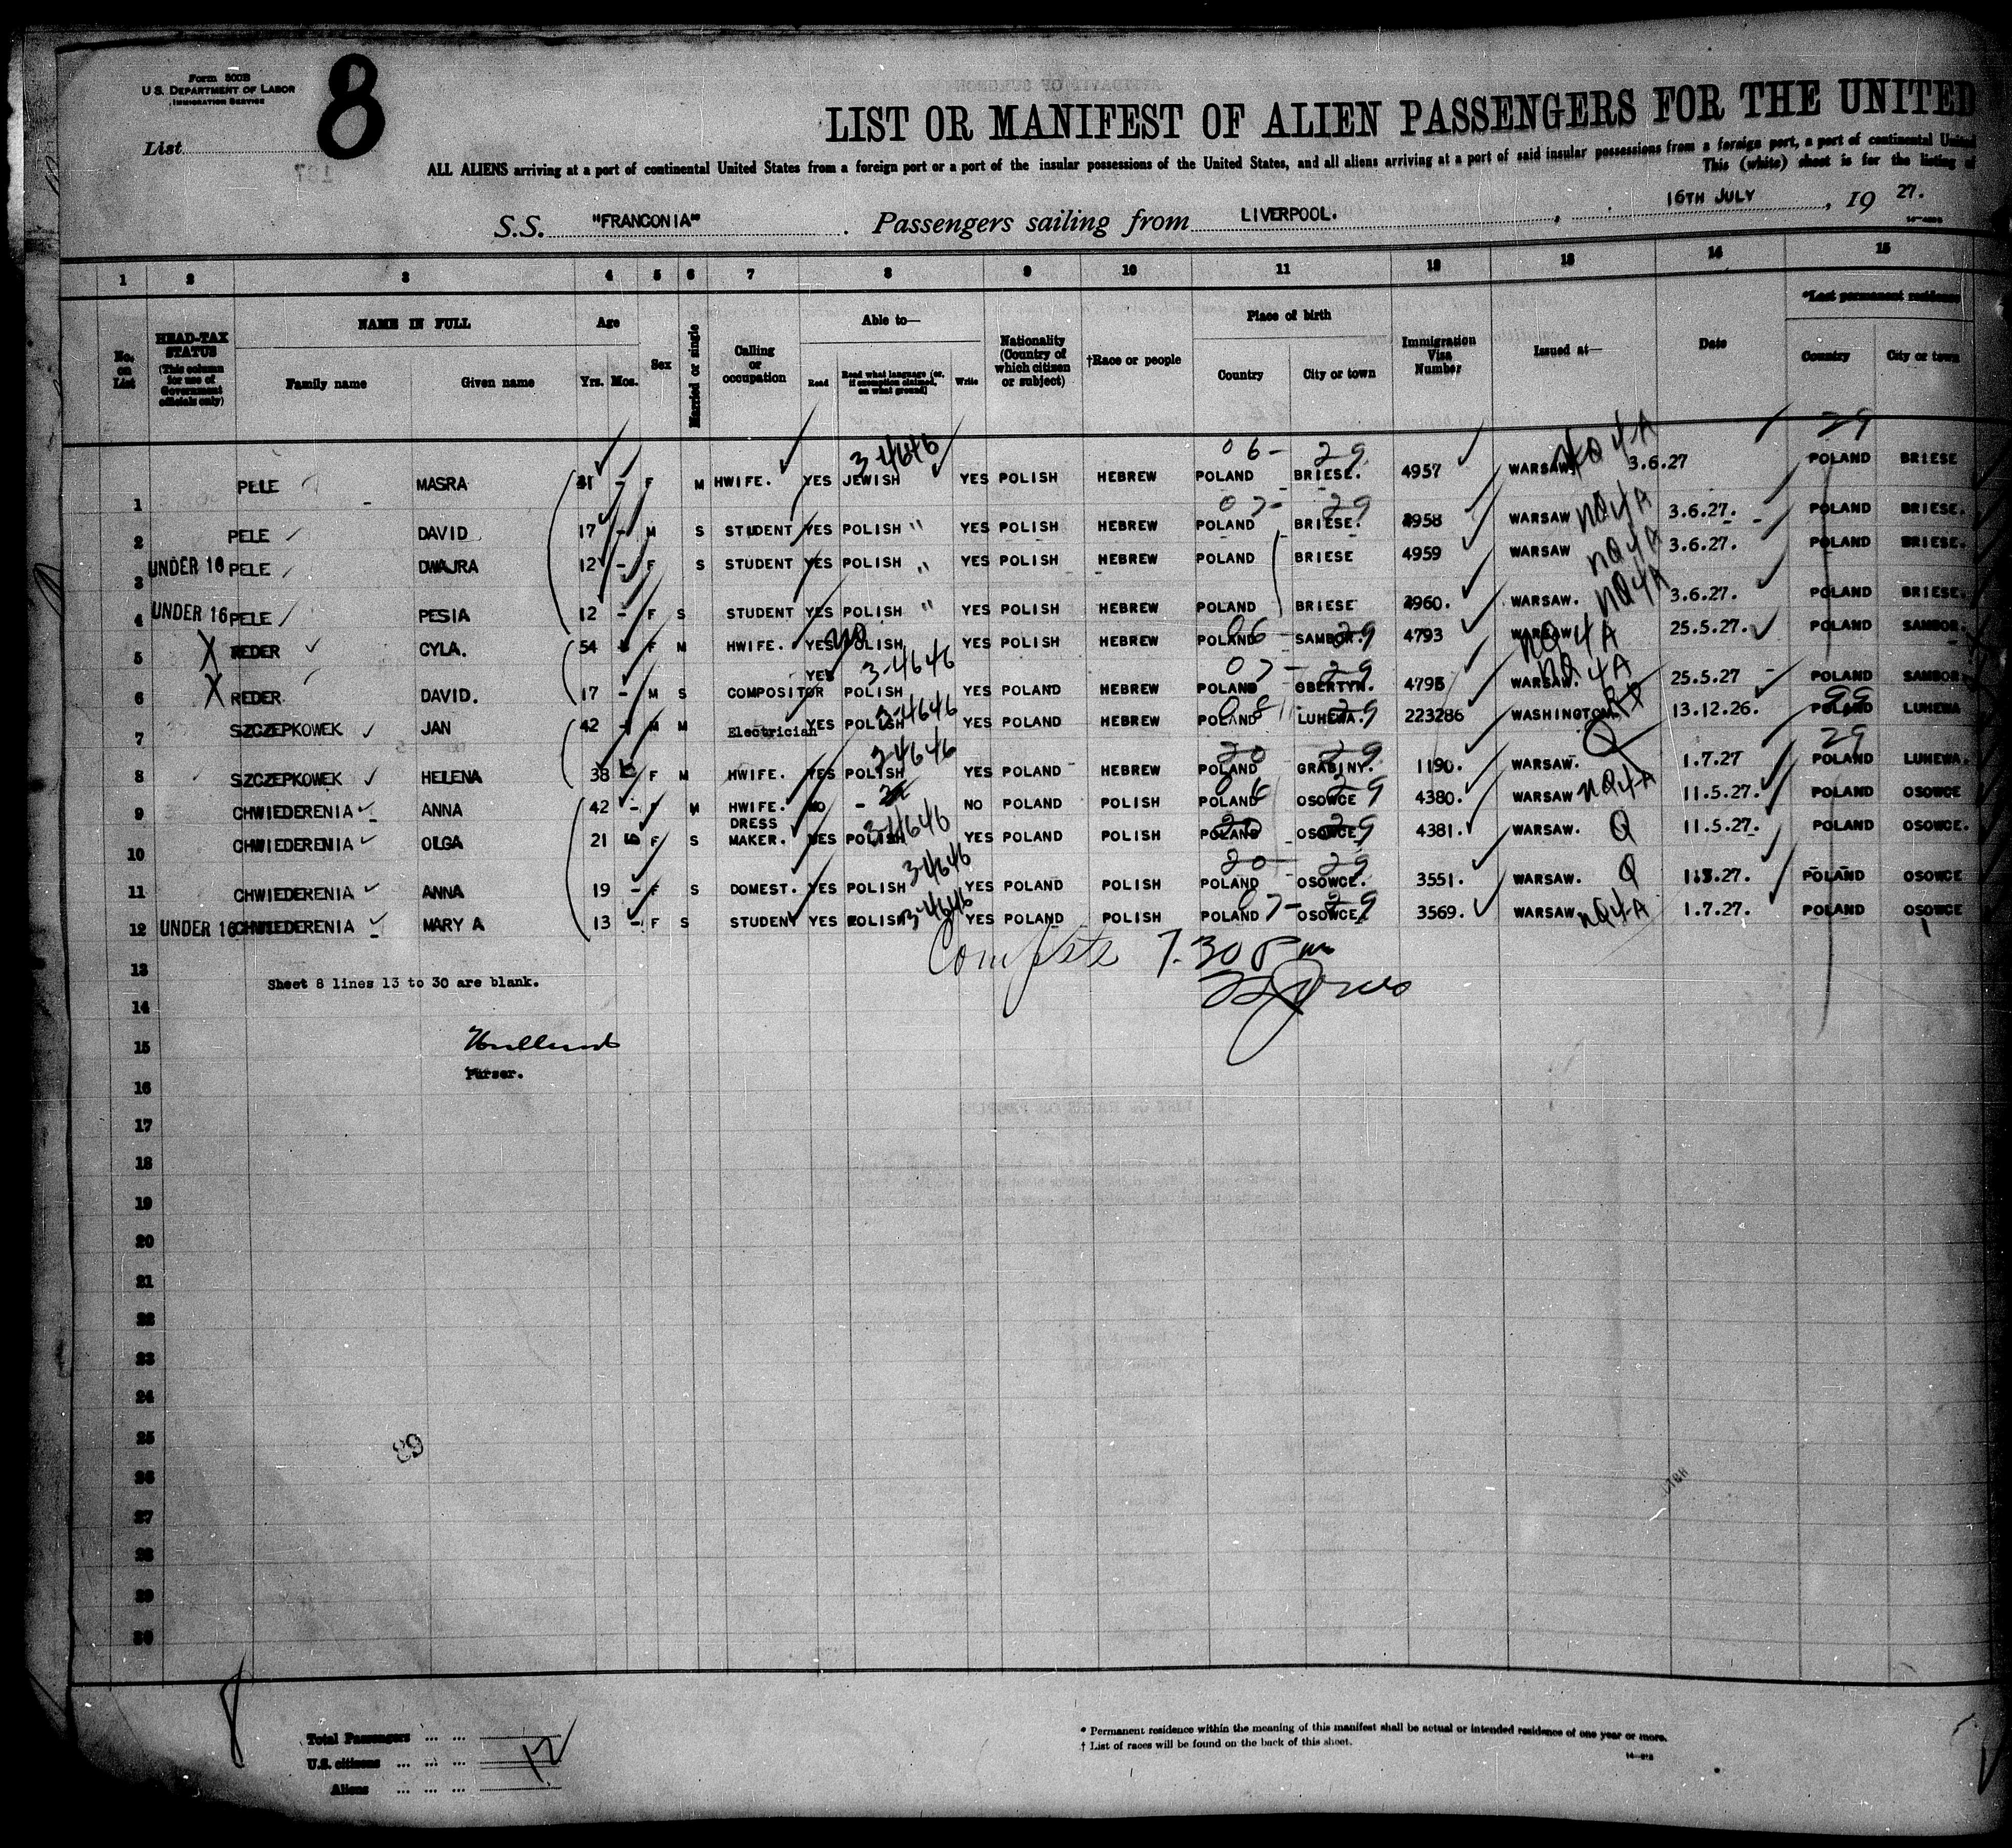 Form 500B
U.S. DEPARTMENT OF LABOR
IMMIGRATION SERVICE
8
List
LIST OR MANIFEST OF ALIEN PASSENGERS FOR THE UNITED
ALL ALIENS arriving at a port of continental United States from a foreign port or a port of the insular possessions of the United States, and all aliens arriving at a port of said insular possessions from a foreign port, a port of continental United
This (white) sheet is for the listing of
S.S. "FRANCONIA" . Passengers sailing from LIVERPOOL. , 16TH JULY , 19 27.
1 2 3 4 5 6 7 8 9 10 11 12 13 14 15
No. on List
HEAD-TAX STATUS (This column for use of Government officials only)
NAME IN FULL Family name Given name
Age Yrs. Mos.
Sex
Married or single
Calling or occupation
Able to— Read Read what language (or, if exemption claimed, on what ground) Write
Nationality (Country of which citizen or subject)
†Race or people
Place of birth Country City or town
Immigration Visa Number
Issued at—
Date
*Last permanent residence Country City or town
1 PELE MASRA 41 - F M HWIFE. YES JEWISH 3-4646 YES POLISH HEBREW POLAND 06- BRIESE. 29 4957 WARSAW NQ4A 3.6.27 POLAND 29 BRIESE
2 PELE DAVID 17 - M S STUDENT YES POLISH " YES POLISH HEBREW POLAND 07- BRIESE. 29 4958 WARSAW NQ4A 3.6.27. POLAND BRIESE.
3 UNDER 16 PELE DWAJRA 12 - F S STUDENT YES POLISH " YES POLISH HEBREW POLAND BRIESE 4959 WARSAW NQ4A 3.6.27. POLAND BRIESE.
4 UNDER 16 PELE PESIA 12 - F S STUDENT YES POLISH " YES POLISH HEBREW POLAND BRIESE 4960. WARSAW. NQ4A 3.6.27. POLAND BRIESE.
5 X REDER CYLA. 54 F M HWIFE. YES POLISH YES POLISH HEBREW POLAND 06 SAMBOR. 29 4793 WARSAW NQ4A 25.5.27. POLAND SAMBOR.
6 X REDER. DAVID. 17 - M S COMPOSITOR YES POLISH 3-4646 YES POLAND HEBREW POLAND 07- OBERTYN. 29 4795 WARSAW. NQ4A 25.5.27 POLAND SAMBOR
7 SZCZEPKOWEK JAN 42 - M M Electrician YES POLISH 3-4646 YES POLAND HEBREW POLAND LUHEWA. 29 223286 WASHINGTON 13.12.26. POLAND 99 LUHEWA
8 SZCZEPKOWEK HELENA 38 F M HWIFE. YES POLISH 3-4646 YES POLAND HEBREW POLAND 20 GRABINY. 29 1190. WARSAW. Q 1.7.27 POLAND 29 LUHEWA.
9 CHWIEDERENIA ANNA 42 - F M HWIFE. NO - NO POLAND POLISH POLAND 06 OSOWCE 29 4380. WARSAW NQ4A 11.5.27. POLAND OSOWCE
10 CHWIEDERENIA OLGA 21 F S DRESS MAKER. YES POLISH 3-4646 YES POLAND POLISH POLAND 20 OSOWCE. 29 4381. WARSAW. Q 11.5.27. POLAND OSOWCE.
11 CHWIEDERENIA ANNA 19 - F S DOMEST. YES POLISH 3-4646 YES POLAND POLISH POLAND 20 OSOWCE. 29 3551. WARSAW. Q POLAND OSOWCE
12 UNDER 16 CHWIEDERENIA MARY A 13 - F S STUDENT YES POLISH 3-4646 YES POLAND POLISH POLAND 07- OSOWCE. 29 3569. WARSAW NQ4A 1.7.27. POLAND OSOWCE
13
Complete 7.30 Pm
Sheet 8 lines 13 to 30 are blank.
14
15
Purser.
16
17
18
19
20
21
22
23
24
25
89
26
27
28
29
30
8
Total Passengers ... ...
U.S. citizens ... ... ... 12
Aliens ... ... ...
* Permanent residence within the meaning of this manifest shall be actual or intended residence of one year or more.
† List of races will be found on the back of this sheet.